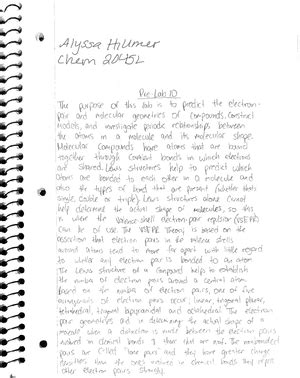 Alyssa Hillmer
Chem 2045L
Pre-Lab 10
The purpose of this lab is to predict the electron-
pair and molecular geometries of compounds, construct
models, and investigate periodic relationships between
the atoms in a molecule and its molecular shape.
Molecular compounds have atoms that are bound
together through covalent bonds in which electrons
are shared. Lewis structures help to predict which
atoms are bonded to each other in a molecule and
also the types of bond that are present (whether thats
single, double or triple). Lewis structures alone cannot
help determine the actual shape of molecules, so this
is when the valence-shell electron-pair repulsion (VSEPR)
can be of use. The VSEPR Theory is based on the
assertion that electron pairs in the valence shells
around atoms tend to move far apart with little regard
to whether any electron pair is bonded to an atom.
The Lewis structure of a compound helps to establish
the number of electron pairs around a central atom.
based on the number of electron pairs, one of five
arrangements of electron pairs occur; linear, trigonal planar,
tetrahedral, trigonal bipyramidal and octahedral. The electron
pair geometries aid in determining the actual shape of a
molecule when a distinction is made between the electron pairs
involved in chemical bonds & those that are not. The nonbonded
pairs are called "lone pairs" and they have greater charge
densities than the ones involved in chemical bonds. They repel
other electron pairs strongly.